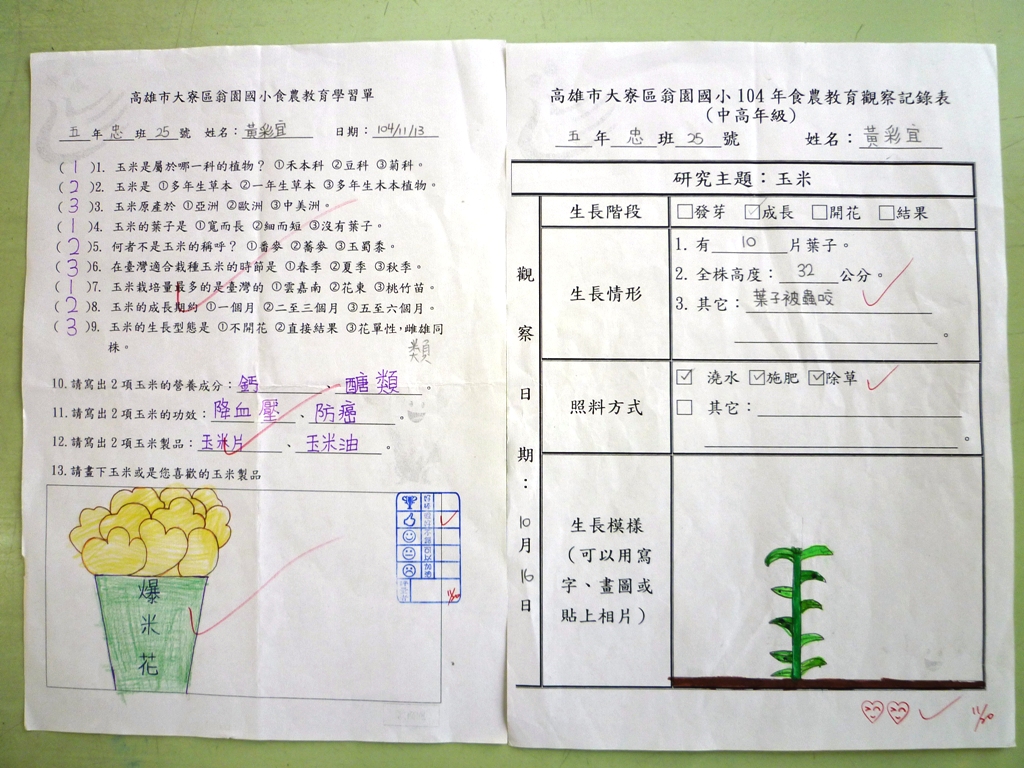 高雄市大寮區翁園國小食農教育學習單
五年忠班25號 姓名：黃彩宜 日期：104/11/13
(1)1. 玉米是屬於哪一科的植物？①禾本科 ②豆科 ③菊科。
(2)2. 玉米是 ①多年生草本 ②一年生草本 ③多年生木本植物。
(3)3. 玉米原產於 ①亞洲 ②歐洲 ③中美洲。
(1)4. 玉米的葉子是 ①寬而長 ②細而短 ③沒有葉子。
(2)5. 何者不是玉米的稱呼？①番麥 ②蕎麥 ③玉蜀黍。
(3)6. 在臺灣適合栽種玉米的時節是 ①春季 ②夏季 ③秋季。
(1)7. 玉米栽培量最多的是臺灣的 ①雲嘉南 ②花東 ③桃竹苗。
(2)8. 玉米的成長期約 ①一個月 ②二至三個月 ③五至六個月。
(3)9. 玉米的生長型態是 ①不開花 ②直接結果 ③花單性，雌雄同
株。
類
10.請寫出2項玉米的營養成分：鈣、醣類。
11.請寫出2項玉米的功效：降血壓、防癌。
12.請寫出2項玉米製品：玉米片、玉米油。
13.請畫下玉米或是您喜歡的玉米製品
爆
米
花
11/20
高雄市大寮區翁園國小104年食農教育觀察記錄表
(中高年級)
五年忠班25號 姓名：黃彩宜
研究主題：玉米
觀察日期：10月16日
生長階段
□發芽 ☑成長 □開花 □結果
生長情形
1. 有10片葉子。
2. 全株高度：32公分。
3. 其它：葉子被蟲咬
。
照料方式
☑ 澆水 ☑施肥 ☑除草
□ 其它：
。
生長模樣
(可以用寫
字、畫圖或
貼上相片)
11/20